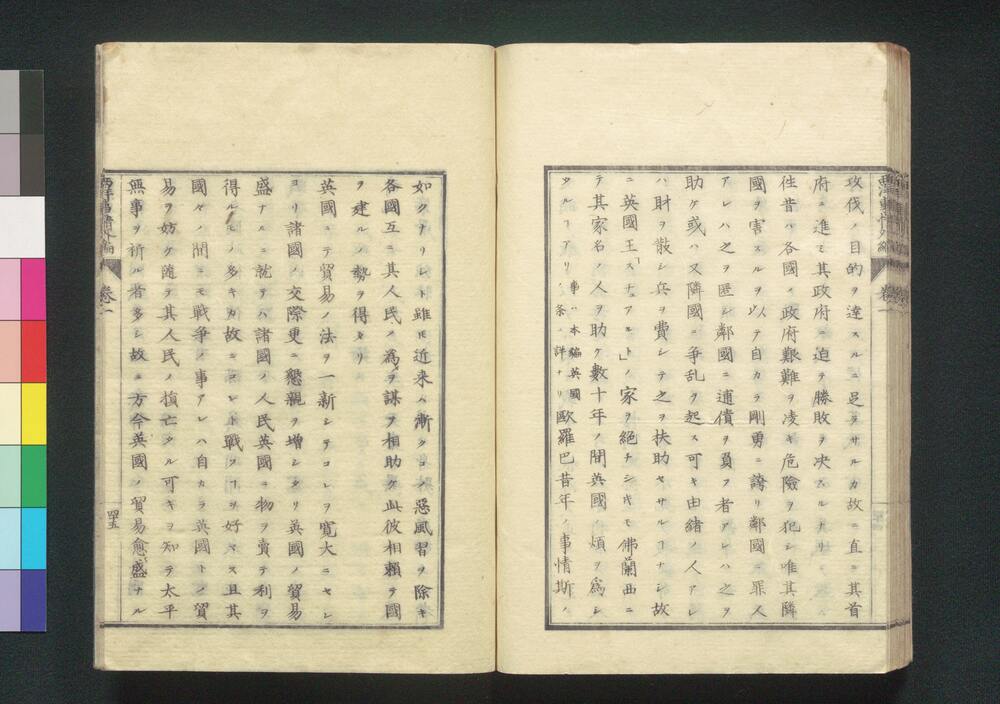 攻伐ノ目的ヲ達スルニ足ラサルカ故ニ直ニ其首
府ニ進ミ其政府ニ迫テ勝敗ヲ决スルナリ
徃昔ハ各國ノ政府艱難ヲ凌キ危險ヲ犯シ唯其隣
國ヲ害スルヲ以テ自カラ剛勇ニ誇リ鄰國ニ罪人
アレハ之ヲ匿シ鄰國ニ逋債ヲ負フ者アレハ之ヲ
助ケ或ハ又隣國ニ争乱ヲ起ス可キ由緒ノ人アレ
ハ財ヲ散シ兵ヲ費シテ之ヲ扶助セサルヿナシ故
ニ英國王「スチュアルト」ノ家ヲ絶チシキモ佛蘭西ニ
テ其家名ノ人ヲ助ケ數十年ノ間英國ノ煩ヲ爲シ
タルヿアリ
事ハ本編英國
ノ条ニ詳ナリ
歐羅巴昔年ノ事情斯ノ
西洋事情外編
卷一
如クナリシト雖𪜈近来ハ漸クコノ惡風習ヲ除キ
各國互ニ其人民ノ為ヲ謀ヲ相助ケ此彼相頼テ國
ヲ建ルノ勢ヲ得タリ
英國ニテ貿易ノ法ヲ一新シテコレヲ寛大ニセシ
ヨリ諸國ノ交際更ニ懇親ヲ増シタリ英國ノ貿易
盛ナルニ就テハ諸國ノ人民英國ニ物ヲ賣テ利ヲ
得ルモノ多キカ故ニコレト戰フヿヲ好マス且其
國々ノ間ニモ戦争ノ事アレハ自カラ英國トノ貿
易ヲ妨ケ隨テ其人民ノ損亡タル可キヲ知テ太平
無事ヲ祈ル者多シ故ニ方今英國ノ貿易愈盛ナル
西洋事情外編
卷一
四五